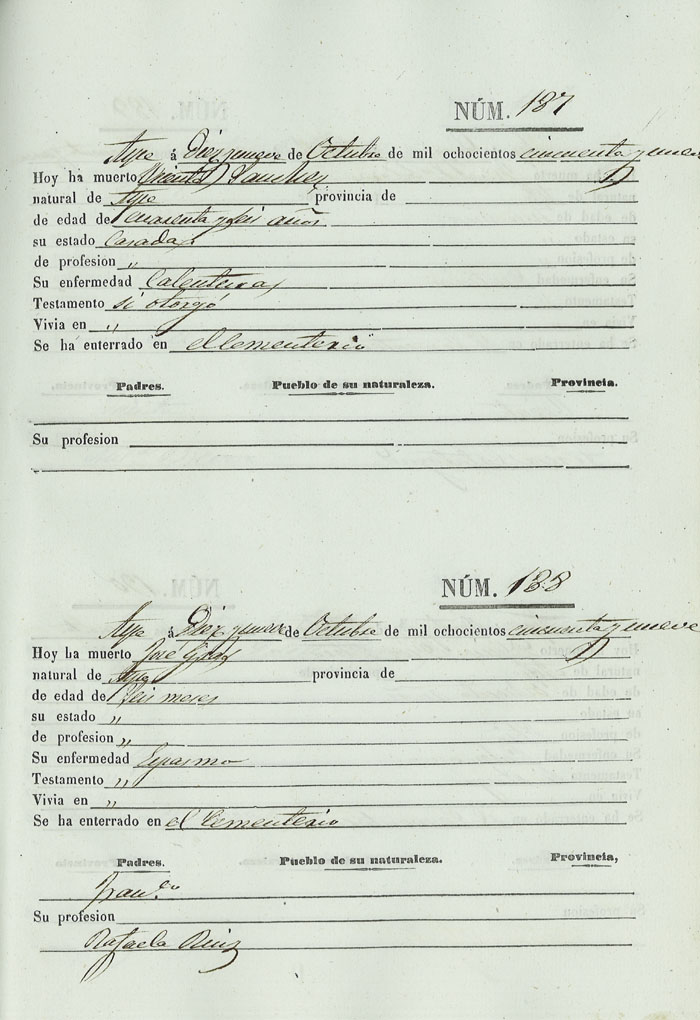 NÚM. 187
Aspe á Diez y nueve de Octubre de mil ochocientos cincuenta y nueve
Hoy ha muerto Vicenta Sanchez
natural de Aspe provincia de
de edad de cuarenta y seis años
su estado Casada
de profesion "
Su enfermedad Calentura
Testamento si otorgó
Vivia en "
Se ha enterrado en el Cementerio
Padres. Pueblo de su naturaleza. Provincia.
Su profesion
NÚM. 188
Aspe á Diez y nueve de Octubre de mil ochocientos cincuenta y nueve
Hoy ha muerto José
natural de Aspe provincia de
de edad de seis meses
su estado "
de profesion "
Su enfermedad Espasmo
Testamento "
Vivia en "
Se ha enterrado en el Cementerio
Padres. Pueblo de su naturaleza. Provincia,
Fran.co
Su profesion
Rafaela Ruiz